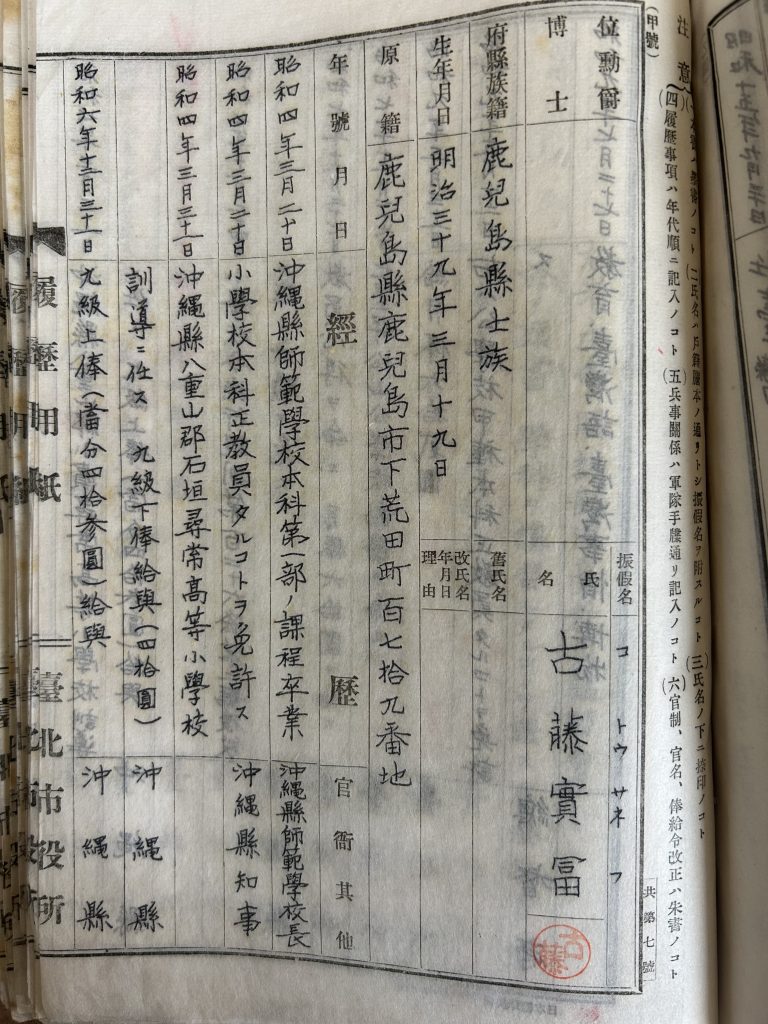 (甲號)
注意
四履歷事項ハ年代順ニ記入ノコト (五兵事關係ハ軍隊手牒通リ記入ノコト (六官制、官名、俸給令改正ハ朱書ノコト
共第七號
位勳爵
博士
振假名 コトウ サネフ
氏名 古藤實冨
古藤
府縣族籍 鹿兒島縣士族
舊氏名
生年月日 明治三十九年三月十九日
改氏名年月日理由
原籍 鹿兒島縣鹿兒島市下荒田町百七拾九番地
年號月日 經歷 官衙其他
昭和四年三月二十日 沖縄縣師範學校本科第一部ノ課程卒業 沖縄縣師範學校長
昭和四年三月二十日 小學校本科正教員タルコトヲ免許ス 沖縄縣知事
昭和四年三月三十一日 沖縄縣八重山郡石垣尋常高等小學校
訓導ニ任ス 九級下俸給與(四拾圓) 沖縄縣
昭和六年十二月三十一日 九級上俸(當分四拾參圓)給與 沖縄縣
履歷用紙 臺北市役所